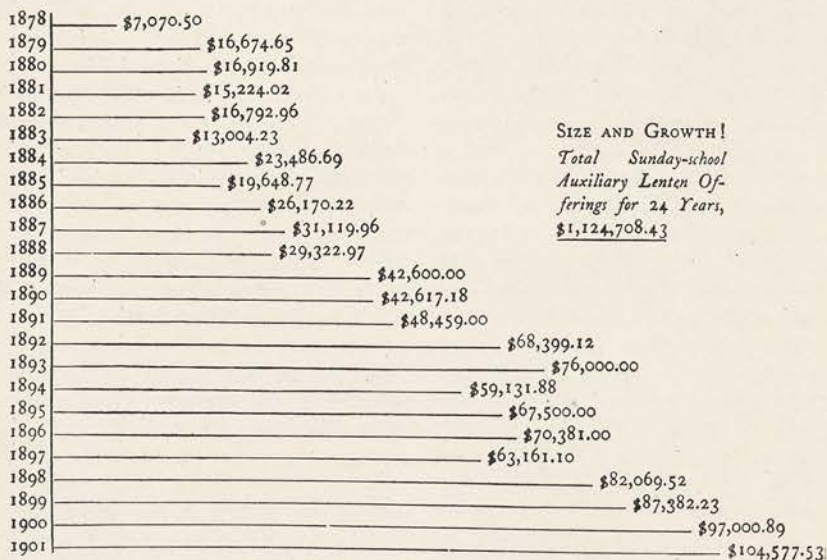 1878 $7,070.50
1879 $16,674.65
1880 $16,919.81
1881 $15,224.02
1882 $16,792.96
1883 $13,004.23
1884 $23,486.69
1885 $19,648.77
1886 $26,170.22
1887 $31,119.96
1888 $29,322.97
1889 $42,600.00
1890 $42,617.18
1891 $48,459.00
1892 $68,399.12
1893 $76,000.00
1894 $59,131.88
1895 $67,500.00
1896 $70,381.00
1897 $63,161.10
1898 $82,069.52
1899 $87,382.23
1900 $97,000.89
1901 $104,577.53
SIZE AND GROWTH!
Total Sunday-school
Auxiliary Lenten Of-
ferings for 24 Years,
$1,124,708.43